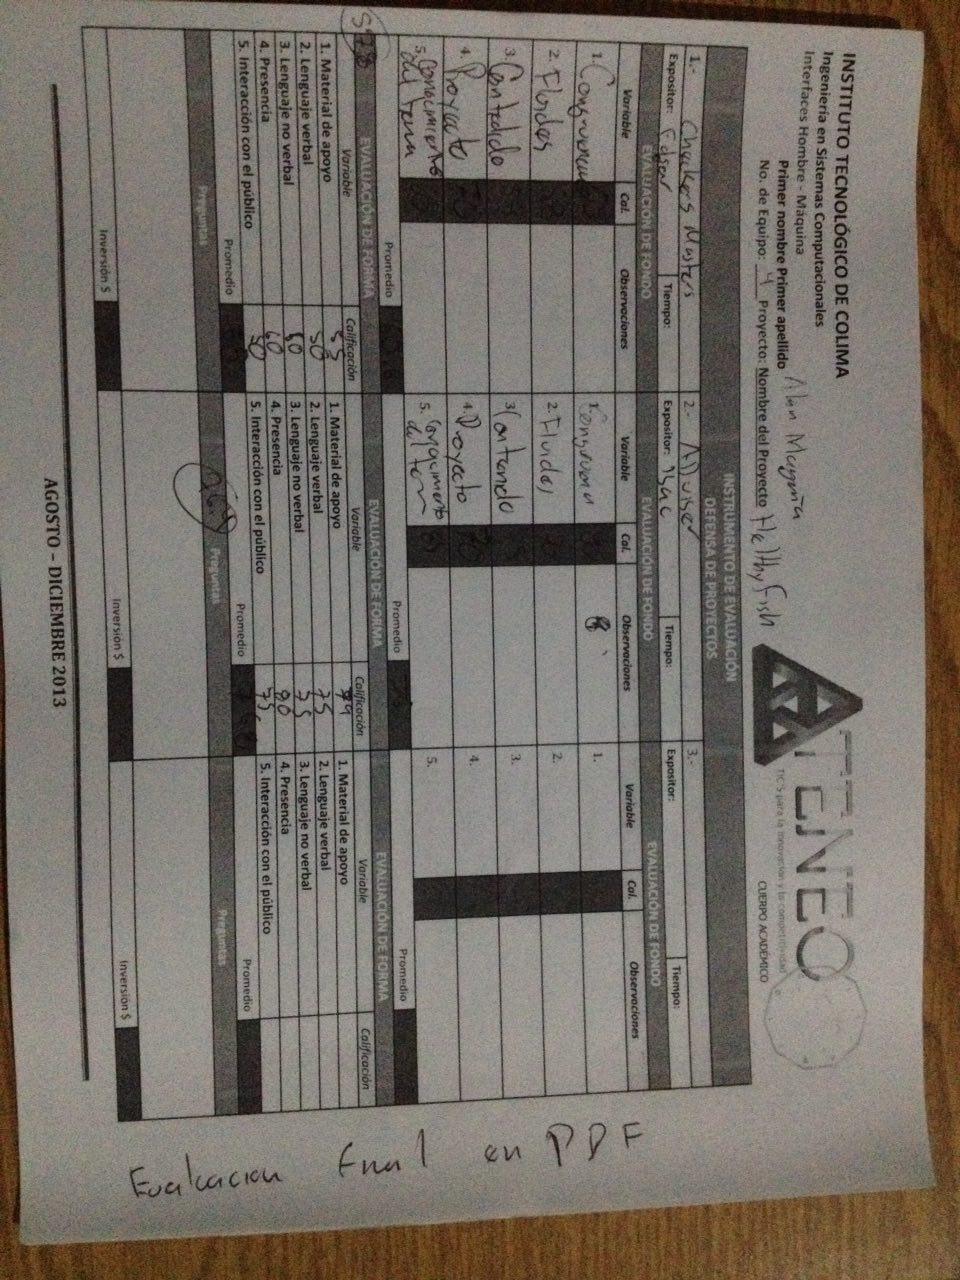 INSTITUTO TECNOLÓGICO DE COLIMA
Ingeniería en Sistemas Computacionales
Interfaces Hombre - Máquina
Primer nombre Primer apellido Alan Magaña
No. de Equipo: 4 Proyecto: Nombre del Proyecto HealthyFish
ATENEO
TIC'S para la innovación y la competitividad
CUERPO ACADEMICO
INSTRUMENTO DE EVALUACIÓN
DEFENSA DE PROYECTOS
1.- Checkers Masters
Expositor: Edgar Tiempo:
EVALUACIÓN DE FONDO
Variable Cal. Observaciones
1. Congruencia
2. Fluides
3. Contedido
4. Proyecto
5. Conocimiento del tema
Promedio
EVALUACIÓN DE FORMA
Variable Calificación
1. Material de apoyo 55
2. Lenguaje verbal 50
3. Lenguaje no verbal 60
4. Presencia 60
5. Interacción con el público 50
Promedio
Preguntas
Inversión $
2.- ADviser
Expositor: Isac Tiempo:
EVALUACIÓN DE FONDO
Variable Cal. Observaciones
1. Congruencia
2. Fluides
3. Contenido
4. Proyecto
5. Conocimiento del tem
Promedio
EVALUACIÓN DE FORMA
Variable Calificación
1. Material de apoyo 79
2. Lenguaje verbal 75
3. Lenguaje no verbal 75
4. Presencia 80
5. Interacción con el público 75
Promedio
Preguntas
Inversión $
3.-
Expositor: Tiempo:
EVALUACIÓN DE FONDO
Variable Cal. Observaciones
1.
2.
3.
4.
5.
Promedio
EVALUACIÓN DE FORMA
Variable Calificación
1. Material de apoyo
2. Lenguaje verbal
3. Lenguaje no verbal
4. Presencia
5. Interacción con el público
Promedio
Preguntas
Inversión $
AGOSTO – DICIEMBRE 2013
Evalcacion Final en PDF